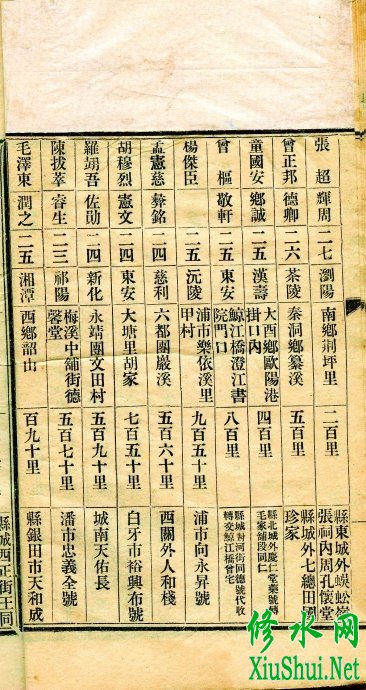 張超 輝周 二七 瀏陽 南鄉荆坪里 二百里 縣東城外蜈蚣嶺張祠內周孔懷堂
曾正邦 德卿 二六 茶陵 秦洞鄉纂溪 五百里 縣城外七總田園珍家
童國安 鄉誠 二五 漢壽 大西鄉歐陽港掛口內 四百里 縣北城外慶仁堂藥號轉毛家舖段同仁
曾樞 敬軒 二五 東安 鯨江橋澄江書院門口 八百里 縣城河街同德號代收轉交鯨江橋曾宅
楊傑臣 二五 沅陵 浦市樂依溪里甲村 九百五十里 浦市向永昇號
孟憲慈 彝銘 二四 慈利 六都團巖溪 五百六十里 西關外人和棧
胡穆烈 憲文 二四 東安 大塘里胡家 七百五十里 白牙市裕興布號
羅翊吾 佐勛 二四 新化 永靖團文田村 五百九十里 城南天佑長
陳拔萃 睿生 二三 祁陽 梅溪中舖街德馨堂 五百七十里 潘市忠義全號
毛澤東 潤之 二五 湘潭 西鄉韶山 百九十里 縣銀田市天和成
縣城西正街王同
修水网
XiuShui.Net